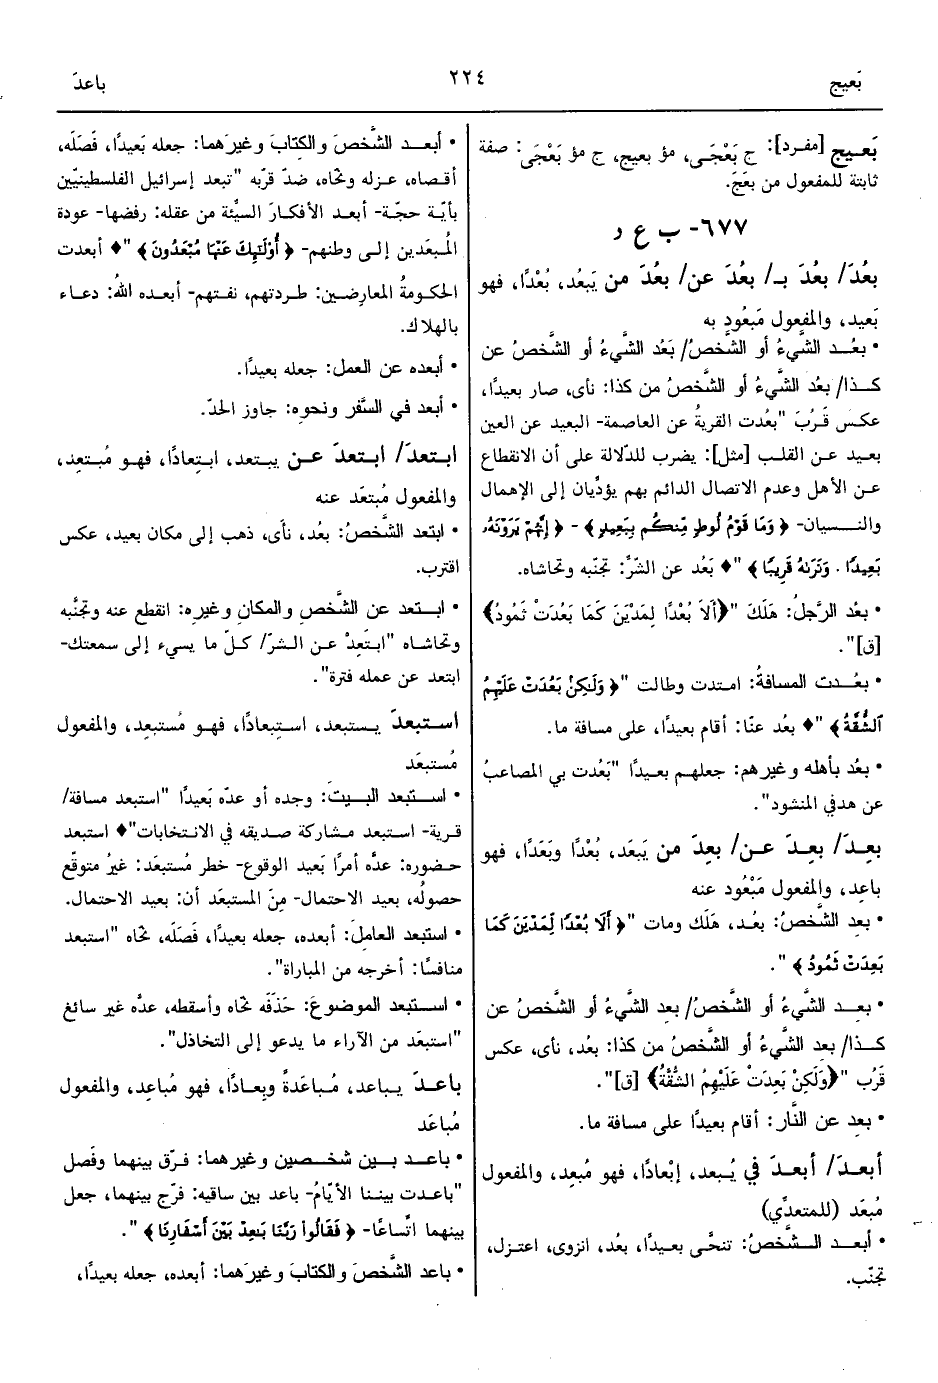 بَعيج
٢٢٤
باعدَ
بَعـيج [مفرد]: ج بَعْجَـى، مؤ بعيج، ج مؤ بَعْجَى: صفة
ثابتة للمفعول من بعَجَ.
٦٧٧- ب ع د
بعُدَ/ بعُدَ بـ/ بعُدَ عن/ بعُدَ من يَبعُد، بُعْدًا، فهو
بَعيد، والمفعول مَبعُودٍ به
• بعُـد الشَّيءُ أو الشَّخصُ/ بَعُد الشَّيءُ أو الشَّخصُ عن
كـذا/ بعُد الشَّيءُ أو الشَّخصُ من كذا: نأى، صار بعيدًا،
عكـس قَـرُبَ "بعُدت القريةُ عن العاصمة- البعيد عن العين
بعـيد عـن القلب [مثل]: يضرب للدّلالة على أن الانقطاع
عـن الأهل وعدم الاتصال الدائم بهم يؤدّيان إلى الإهمال
والنـسيان- ﴿ وَمَا قَوْمُ لُوطٍ مِّنكُم بِبَعِيدٍ ﴾ - ﴿ إِنَّهُمْ يَرَوْنَهُۥ
بَعِيدًا . وَنَرَىٰهُ قَرِيبًا ﴾ "♦ بَعُد عن الشّرّ: تجنّبه وتحاشاه.
• بعُد الرَّجلُ: هَلَكَ "﴿أَلاَ بُعْدًا لِمَدْيَنَ كَمَا بَعُدَتْ ثَمُودُ﴾
[ق]".
• بعُـدت المسافةُ: امتدت وطالت "﴿ وَلَٰكِنۢ بَعُدَتْ عَلَيْهِمُ
ٱلشُّقَّةُ ﴾ "♦ بعُد عنّا: أقام بعيدًا، على مسافة ما.
• بعُد بأهله وغيرهم: جعلهم بعيدًا "بَعُدت بي المصاعبُ
عن هدفي المنشود".
بعِدَ/ بعِدَ عن/ بعِدَ من يَبعَد، بُعْدًا وبَعَدًا، فهو
باعِد، والمفعول مَبْعُود عنه
• بعِد الشَّخصُ: بعُد، هَلَك ومات "﴿ أَلَا بُعْدًا لِّمَدْيَنَ كَمَا
بَعِدَتْ ثَمُودُ ﴾ ".
• بعِـد الشَّيءُ أو الشَّخصُ/ بعِد الشَّيءُ أو الشَّخصُ عن
كـذا/ بعِد الشَّيءُ أو الشَّخصُ من كذا: بعُد، نأى، عكس
قَرُب "﴿وَلَكِنْ بَعِدَتْ عَلَيْهِمُ الشُّقَّةُ﴾ [ق]".
• بعِد عن النَّار: أقام بعيدًا على مسافة ما.
أبعدَ/ أبعدَ في يُبعد، إبْعادًا، فهو مُبعِد، والمفعول
مُبعَد (للمتعدِّي)
• أبعـد الـشَّخصُ: تنحَّى بعـيدًا، بعُد، انزوى، اعتزل،
تجنّب.
• أبعـد الشَّخصَ والكتابَ وغيرَهما: جعله بَعيدًا، فَصَلَه،
أقـصاه، عـزله ونحّاه، ضدّ قرّبه "تبعد إسرائيل الفلسطينيّين
بأيّة حجّة- أبعد الأفكارَ السيِّئة من عقله: رفضها- عودة
المُبعَدين إلى وطنهم- ﴿ أُوْلَٰٓئِكَ عَنْهَا مُبْعَدُونَ ﴾ "♦ أبعدت
الحكومةُ المعارضين: طردتهم، نفتهم- أبعده اللهُ: دعاء
بالهلاك.
• أبعده عن العمل: جعله بعيدًا.
• أبعد في السَّفر ونحوِه: جاوز الحدّ.
ابتعدَ/ ابتعدَ عـن يبتعد، ابتعادًا، فهـو مُبتعِد،
والمفعول مُبتعَد عنه
• ابتعد الشَّخصُ: بعُد، نأى، ذهب إلى مكان بعيد، عكس
اقترب.
• ابـتعد عن الشَّخصِ والمكانِ وغيرِه: انقطع عنه وتجنَّبه
وتحاشاه "ابتَعِدْ عـن الـشرّ/ كـلّ ما يسيء إلى سمعتك-
ابتعد عن عمله فترة".
استبعدَ يستبعد، استِبعادًا، فهو مُستبعِد، والمفعول
مُستبعَد
• اسـتبعد البـيتَ: وجده أو عدّه بَعيدًا "استبعد مسافة/
قـرية- استبعد مشاركة صديقه في الانتخابات"♦ استبعد
حضوره: عدّه أمرًا بَعيد الوقوع- خطر مُستبعَد: غيرُ متوقّع
حصولُه، بعيد الاحتمال- مِنَ المستبعَد أن: بعيد الاحتمال.
• استبعد العاملَ: أبعده، جعله بعيدًا، فَصَلَه، نحّاه "استبعد
منافسًا: أخرجه من المباراة".
• اسـتبعد الموضوعَ: حَذَفَه نحّاه وأسقطه، عدّه غير سائغ
"استبعَد من الآراء ما يدعو إلى التخاذل".
باعـدَ يـباعد، مُـباعَدةً وبِعـادًا، فهو مُباعِد، والمفعول
مُباعَد
• باعـد بـين شخـصين وغيرهما: فـرّق بينهما وفَصل
"باعـدت بيننا الأيّامُ- باعد بين ساقيه: فرّج بينهما، جعل
بينهما اتّساعًا- ﴿ فَقَالُواْ رَبَّنَا بَٰعِدْ بَيْنَ أَسْفَارِنَا ﴾ ".
• باعد الشَّخصَ والكتابَ وغيرَهما: أبعده، جعله بعيدًا،